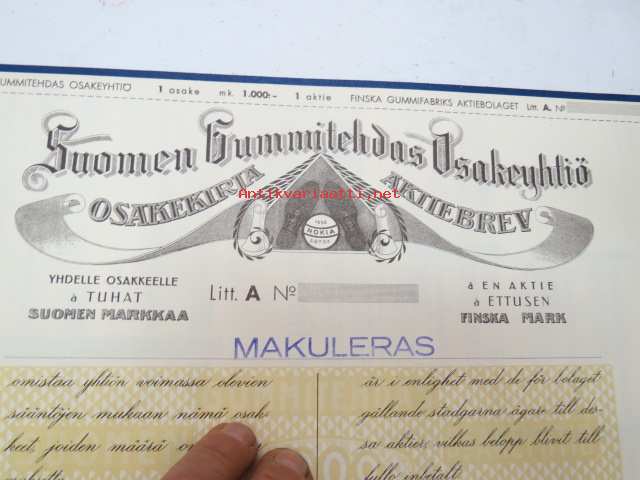 UMMITEHDAS OSAKEYHTIÖ 1 osake mk. 1.000:- 1 aktie FINSKA GUMMIFABRIKS AKTIEBOLAGET Litt. A. Nº
Suomen Gummitehdas Osakeyhtiö
OSAKEKIRJA AKTIEBREV
Antikvariaatti.net
NOKIA
YHDELLE OSAKKEELLE
à TUHAT
SUOMEN MARKKAA
Litt. A Nº
à EN AKTIE
à ETTUSEN
FINSKA MARK
MAKULERAS
omistaa yhtiön voimassa olevien
sääntöjen mukaan nämä osak-
keet, joiden määrä on
är i enlighet med de för bolaget
gällande stadgarna ägare till des-
sa aktier, vilkas belopp blivit till
fullo inbetalt.